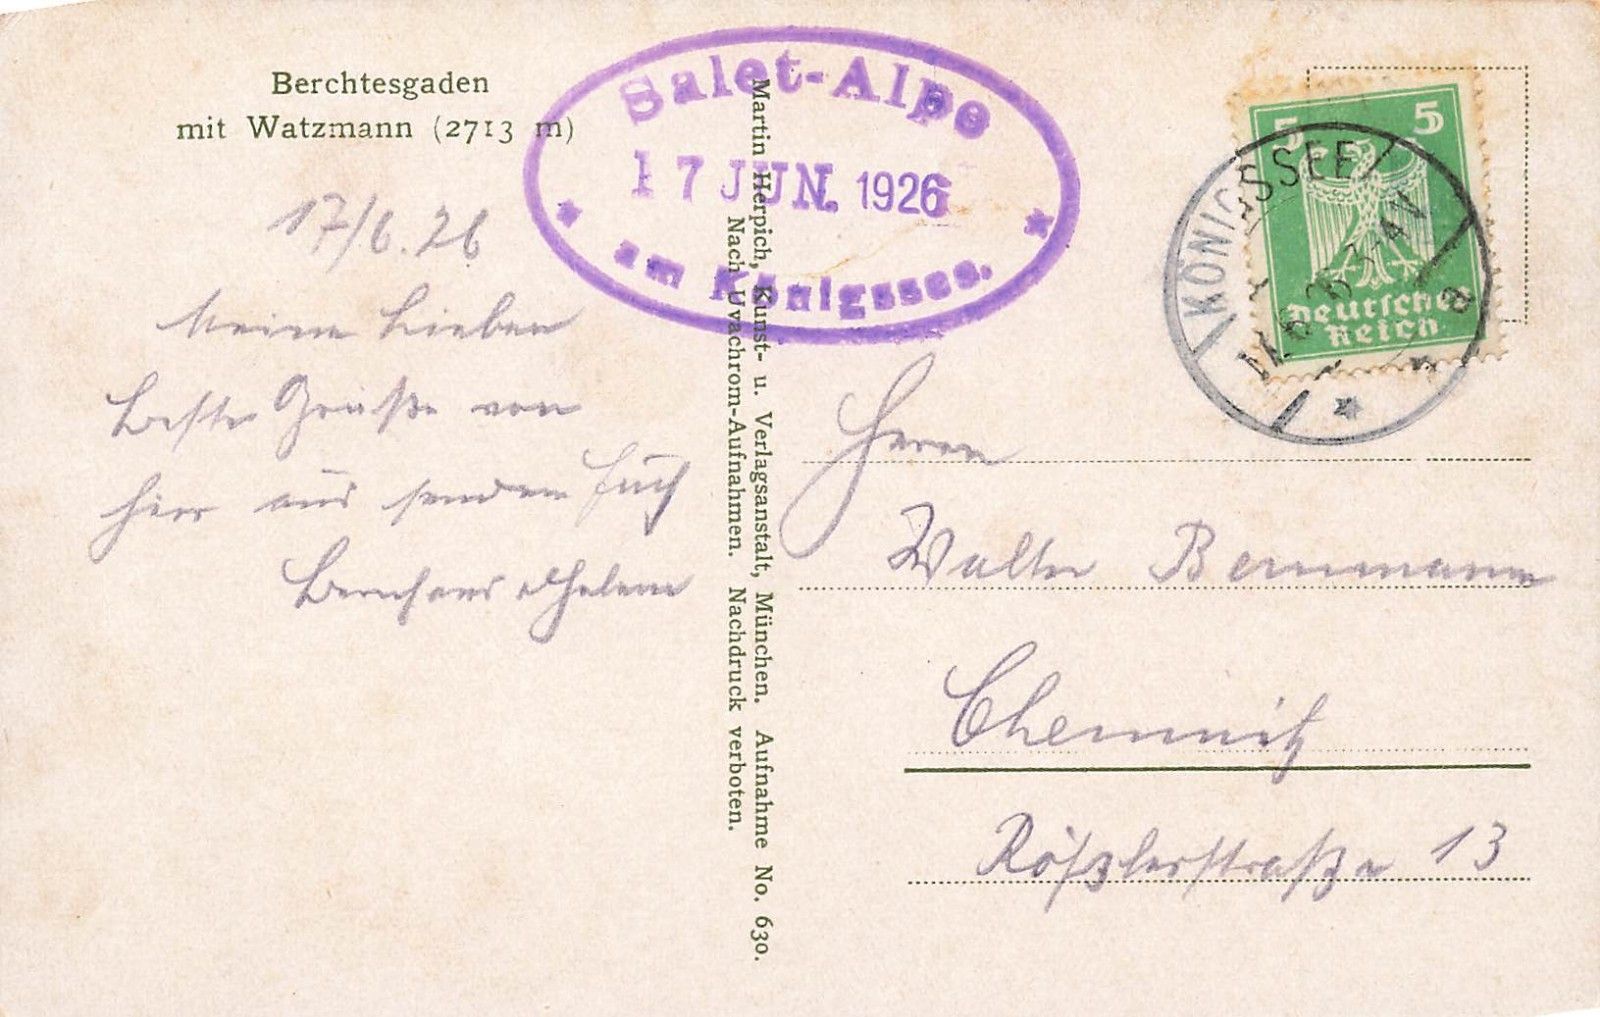 Berchtesgaden
mit Watzmann (2713 m)
Salet-Alpe
17 JUN. 1926
am Königssee.
17/6. 26
Meine Lieben
Beste Grüße von
hier aus senden Euch
Bernhard & Helene
Martin Herpich, Kunst- u. Verlagsanstalt, München. Aufnahme No. 630.
Nach Uvachrom-Aufnahmen. Nachdruck verboten.
5 5
Deutsches
Reich
KÖNIGSSEE
Herrn
Walter Bernmann
Chemnitz
Rößlerstraße 13